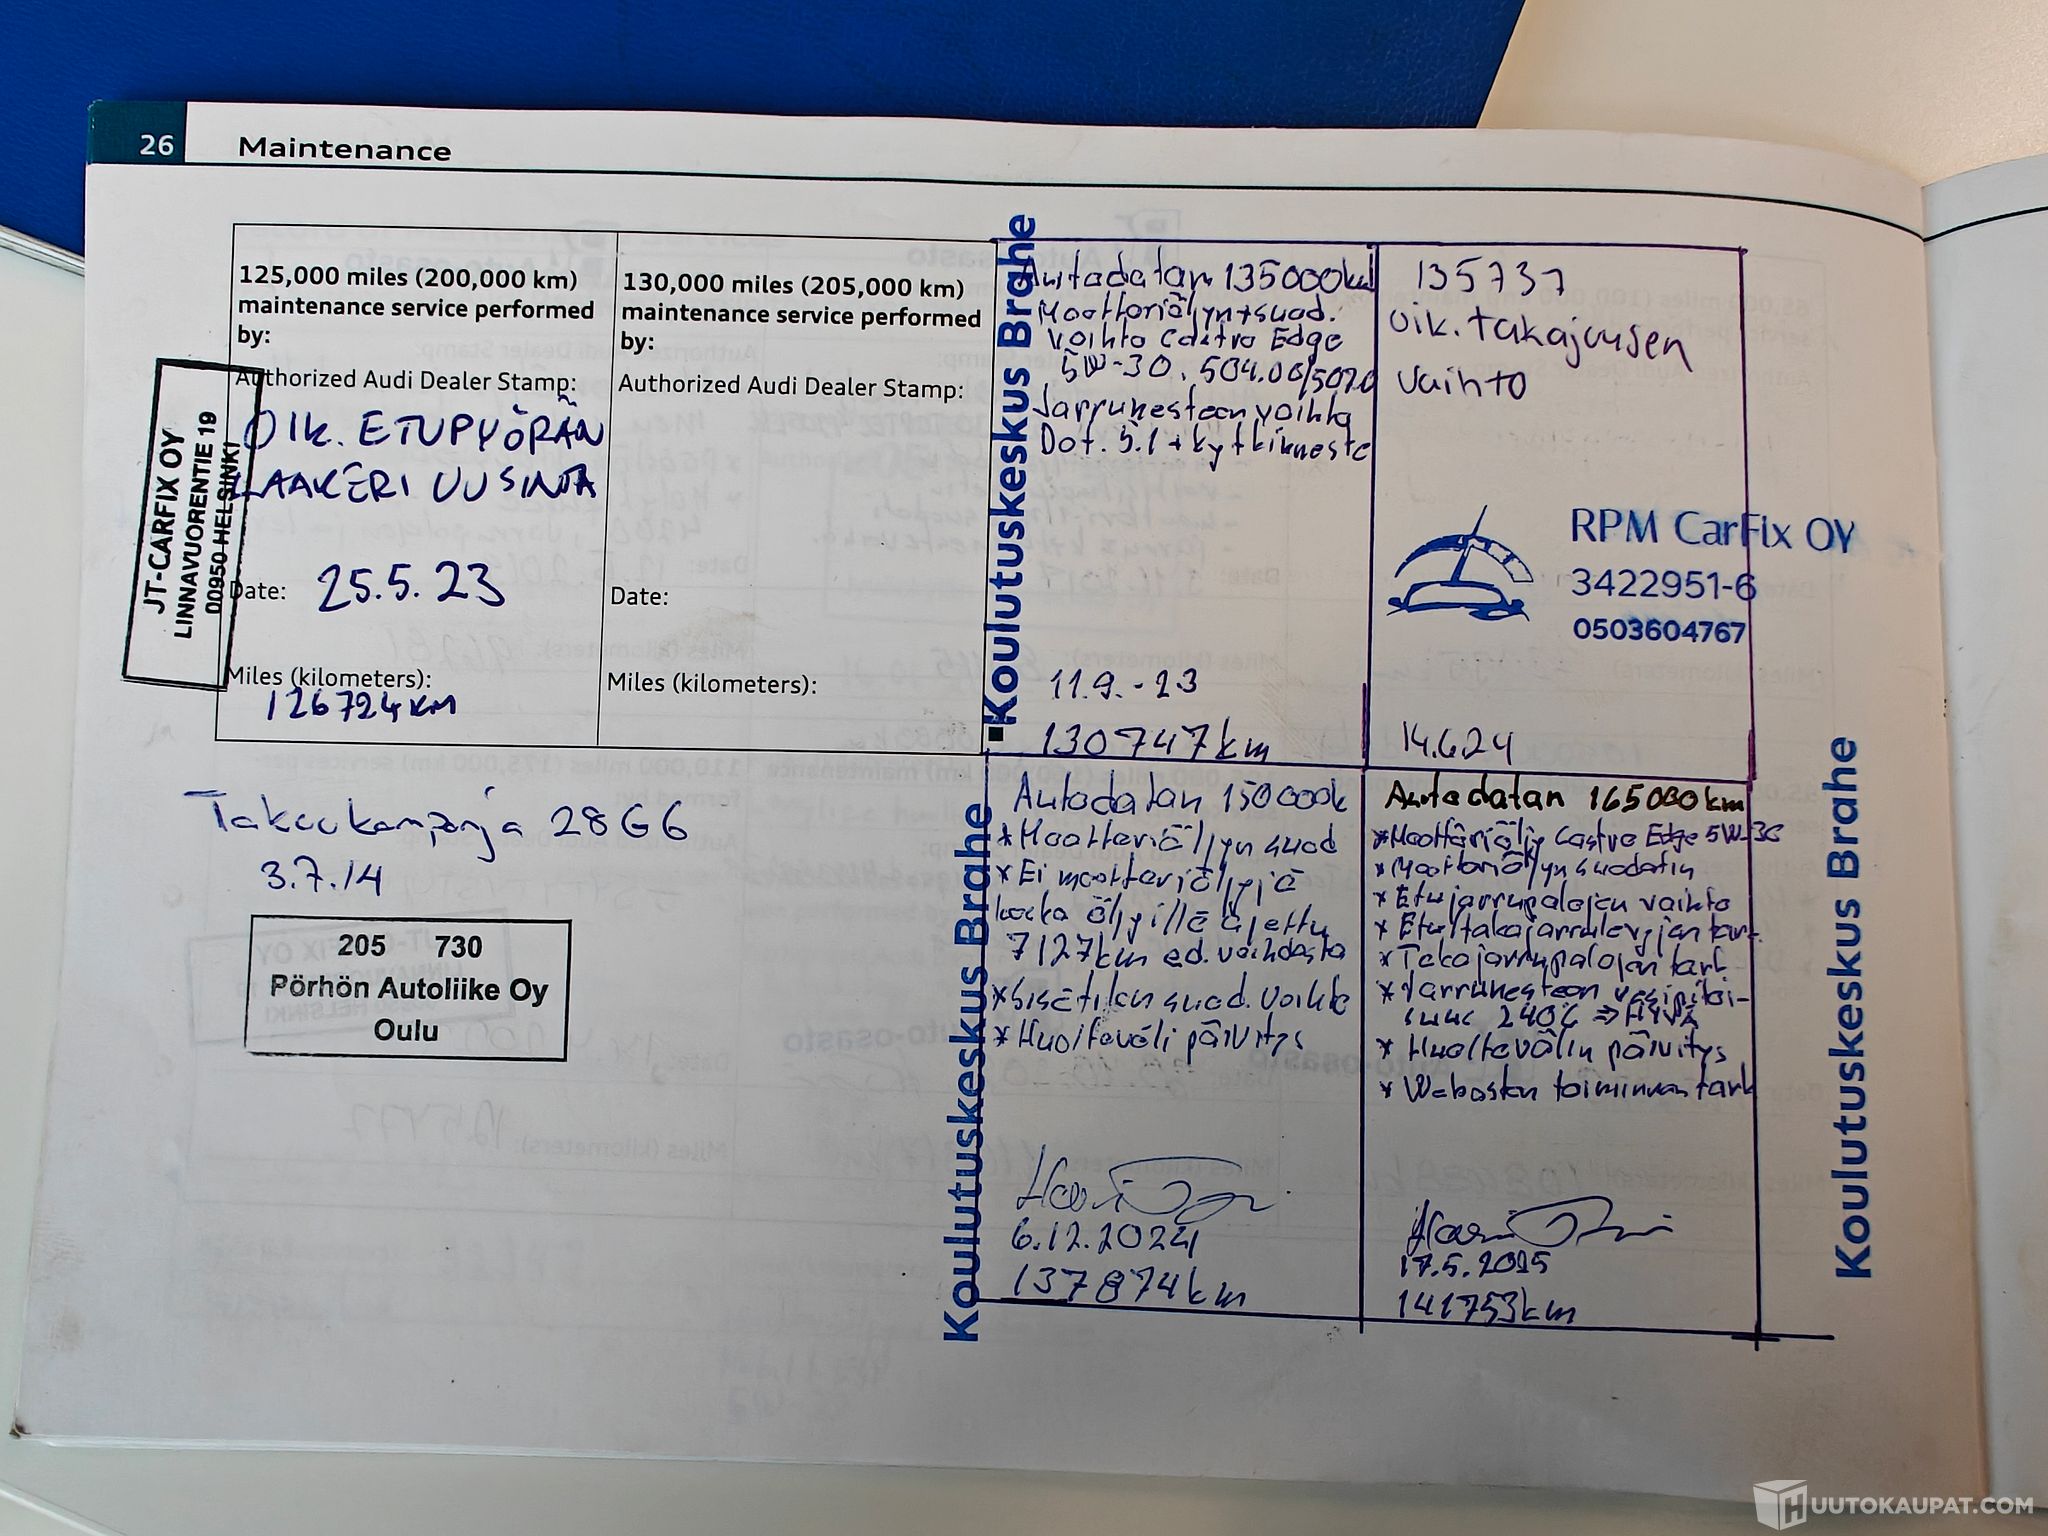 26 Maintenance
125,000 miles (200,000 km)
maintenance service performed
by:
Authorized Audi Dealer Stamp:
OIK. ETUPYÖRÄN
LAAKERI UUSINTA
JT-CARFIX OY
LINNAVUORENTIE 19
00950 HELSINKI
Date: 25.5.23
Miles (kilometers):
126724KM
130,000 miles (205,000 km)
maintenance service performed
by:
Authorized Audi Dealer Stamp:
Date:
Miles (kilometers):
Koulutuskeskus Brahe
Autodatan 135000km
Moottoriöljyn+suod.
vaihto Edge
5W-30. 504.00/507.0
Jarrunesteen vaihto
Dot. 5.1 + kytkinneste
11.9.-23
130747km
135737
oik. takajousen
vaihto
RPM CarFix OY
3422951-6
0503604767
14.6.24
Takaukampanja 28G6
3.7.14
205 730
Pörhön Autoliike Oy
Oulu
Koulutuskeskus Brahe
Autodatan 150000k
* Moottoriöljyn suod
* Ei moottoriöljyjä
koska öljyillä ajettu
7127km ed. vaihdosta
* Sisätilan suod. vaihto
* Huoltoväli päivitys
6.12.2024
137874km
Autodatan 165000km
* Moottoriöljy Castro Edge 5W-30
* Moottoriöljyn suodatin
* Etujarrupalojen vaihto
* Etu/takajarrulevyjen tark.
* Takajarrupalojen tark
* Jarrunesteen vesipitoi-
suus 240°C ⇒ HYVÄ
* Huoltovälin päivitys
* Webaston toiminnan tark
17.5.2025
141753km
Koulutuskeskus Brahe
HUUTOKAUPAT.COM